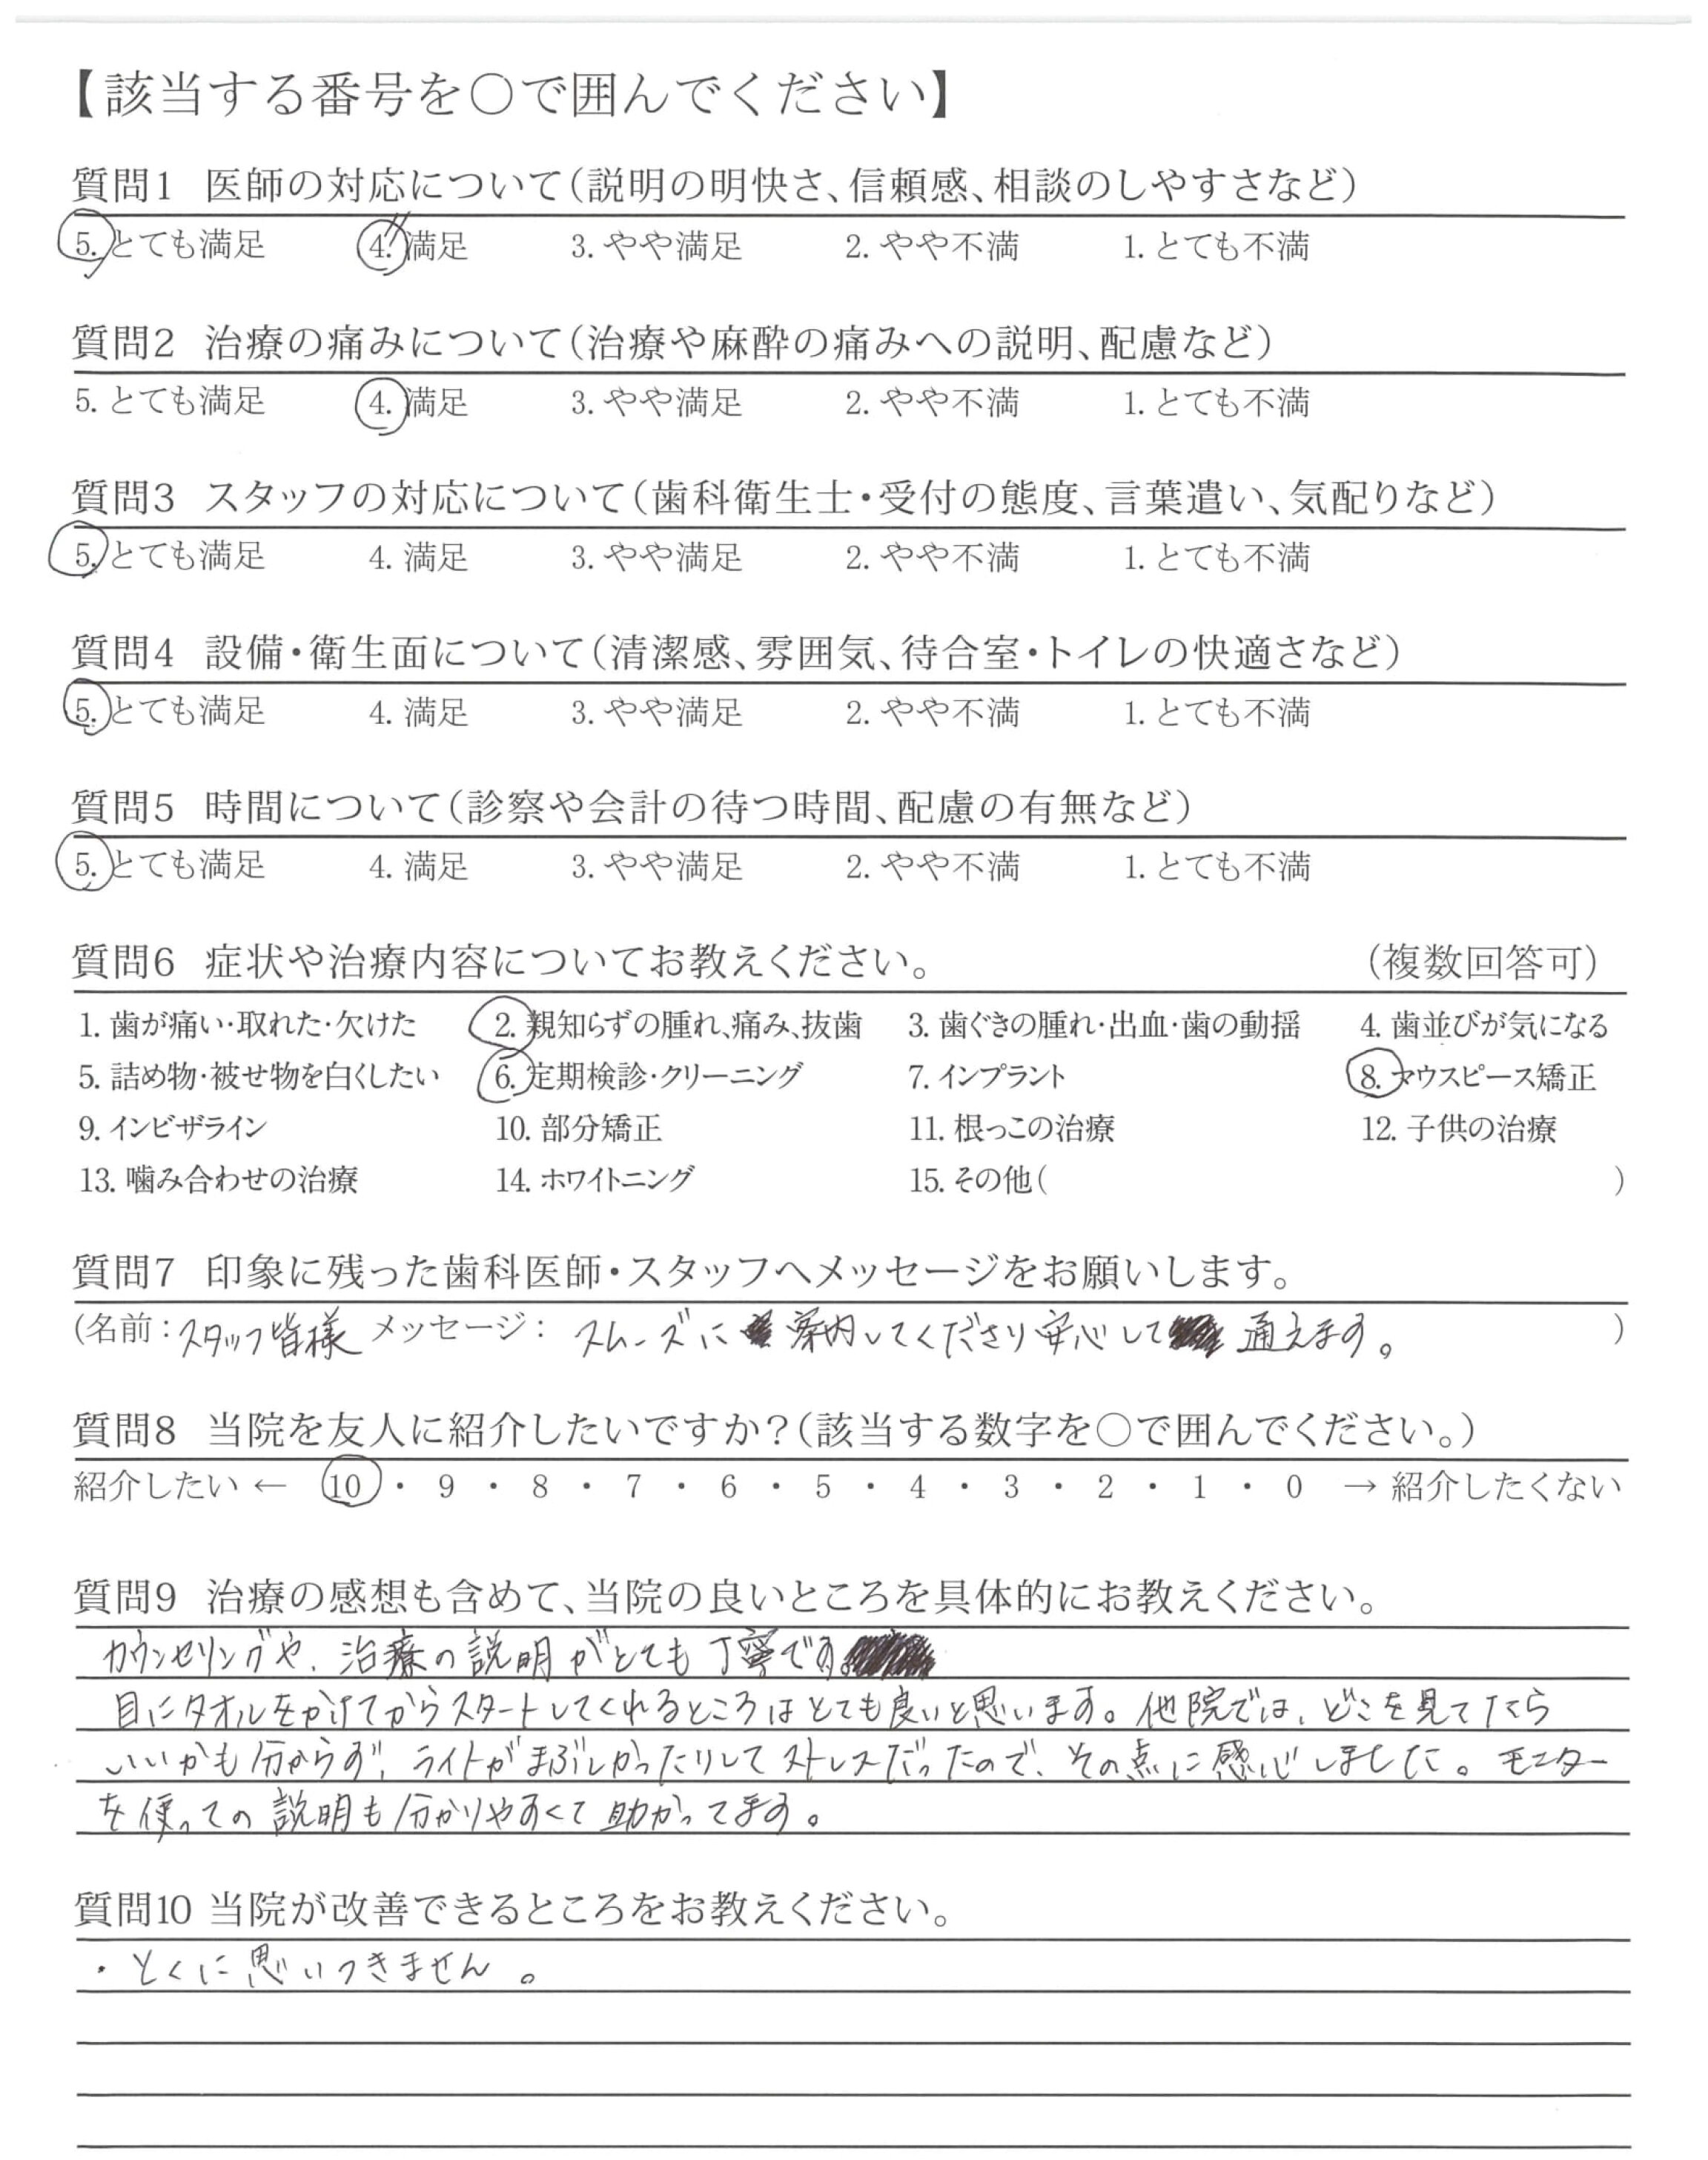 【該当する番号を○で囲んでください】
質問1 医師の対応について（説明の明快さ、信頼感、相談のしやすさなど）
5. とても満足 4. 満足 3. やや満足 2. やや不満 1. とても不満
質問2 治療の痛みについて（治療や麻酔の痛みへの説明、配慮など）
5. とても満足 4. 満足 3. やや満足 2. やや不満 1. とても不満
質問3 スタッフの対応について（歯科衛生士・受付の態度、言葉遣い、気配りなど）
5. とても満足 4. 満足 3. やや満足 2. やや不満 1. とても不満
質問4 設備・衛生面について（清潔感、雰囲気、待合室・トイレの快適さなど）
5. とても満足 4. 満足 3. やや満足 2. やや不満 1. とても不満
質問5 時間について（診察や会計の待つ時間、配慮の有無など）
5. とても満足 4. 満足 3. やや満足 2. やや不満 1. とても不満
質問6 症状や治療内容についてお教えください。 （複数回答可）
1. 歯が痛い・取れた・欠けた 2. 親知らずの腫れ、痛み、抜歯 3. 歯ぐきの腫れ・出血・歯の動揺 4. 歯並びが気になる
5. 詰め物・被せ物を白くしたい 6. 定期検診・クリーニング 7. インプラント 8. マウスピース矯正
9. インビザライン 10. 部分矯正 11. 根っこの治療 12. 子供の治療
13. 噛み合わせの治療 14. ホワイトニング 15. その他（ ）
質問7 印象に残った歯科医師・スタッフへメッセージをお願いします。
（名前：スタッフ皆様 メッセージ： スムーズに案内してくださり安心して通えます。 ）
質問8 当院を友人に紹介したいですか？（該当する数字を○で囲んでください。）
紹介したい ← 10 ・ 9 ・ 8 ・ 7 ・ 6 ・ 5 ・ 4 ・ 3 ・ 2 ・ 1 ・ 0 → 紹介したくない
質問9 治療の感想も含めて、当院の良いところを具体的にお教えください。
カウンセリングや、治療の説明がとても丁寧です。
目にタオルをかけてからスタートしてくれるところはとても良いと思います。他院では、どこを見てたら
いいかも分からず、ライトがまぶしかったりしてストレスだったので、その点に感心しました。モニター
を使っての説明も分かりやすくて助かってます。
質問10 当院が改善できるところをお教えください。
・とくに思いつきません。